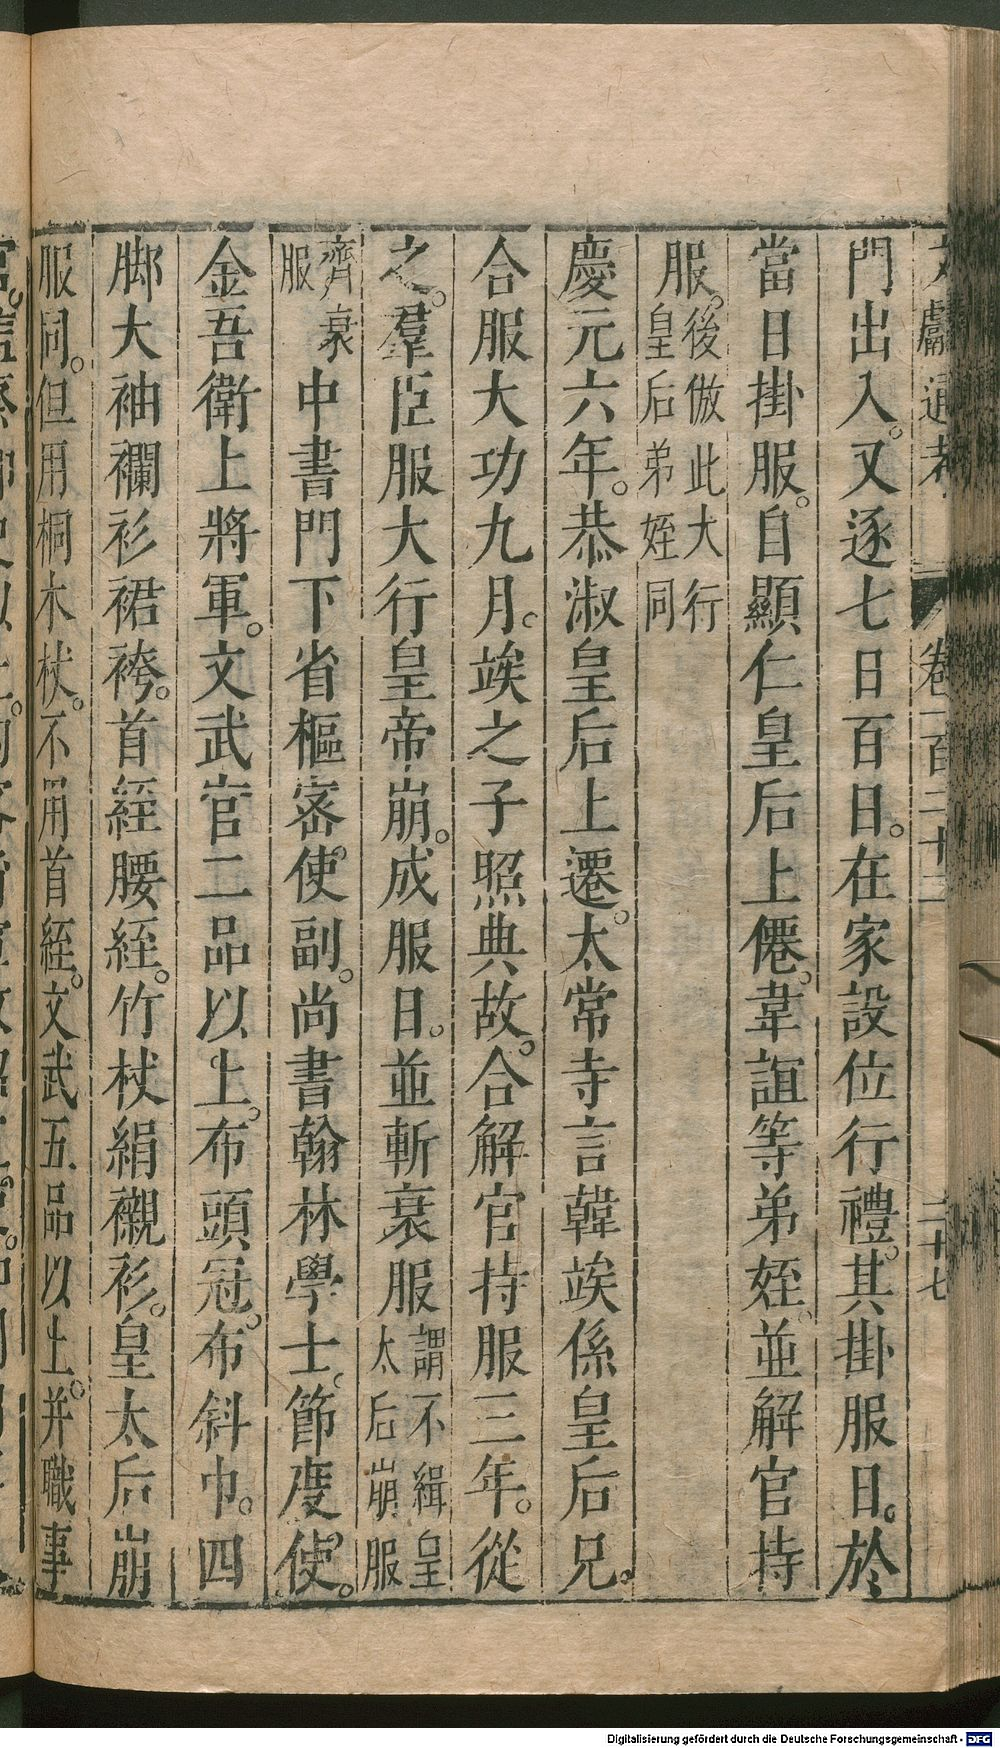 文獻通考 卷一百二十二 二十七
門出入。又逐七日百日。在家設位行禮。其掛服日。於
當日掛服。自顯仁皇后上僊。韋誼等弟姪。並解官持
服。後倣此大行皇后弟姪同
慶元六年。恭淑皇后上遷。太常寺言韓竢係皇后兄。
合服大功九月。竢之子照典故。合解官持服三年。從
之。羣臣服大行皇帝崩。成服日。並斬衰服謂不緝皇太后崩服
齊衰服中書門下省樞密使副。尚書翰林學士。節度使。
金吾衛上將軍。文武官二品以上。布頭冠。布斜巾。四
脚大袖襴衫裙袴。首絰腰絰。竹杖絹襯衫。皇太后崩
服同。但用桐木杖。不用首絰。文武五品以上。并職事
Digitalisierung gefördert durch die Deutsche Forschungsgemeinschaft - DFG